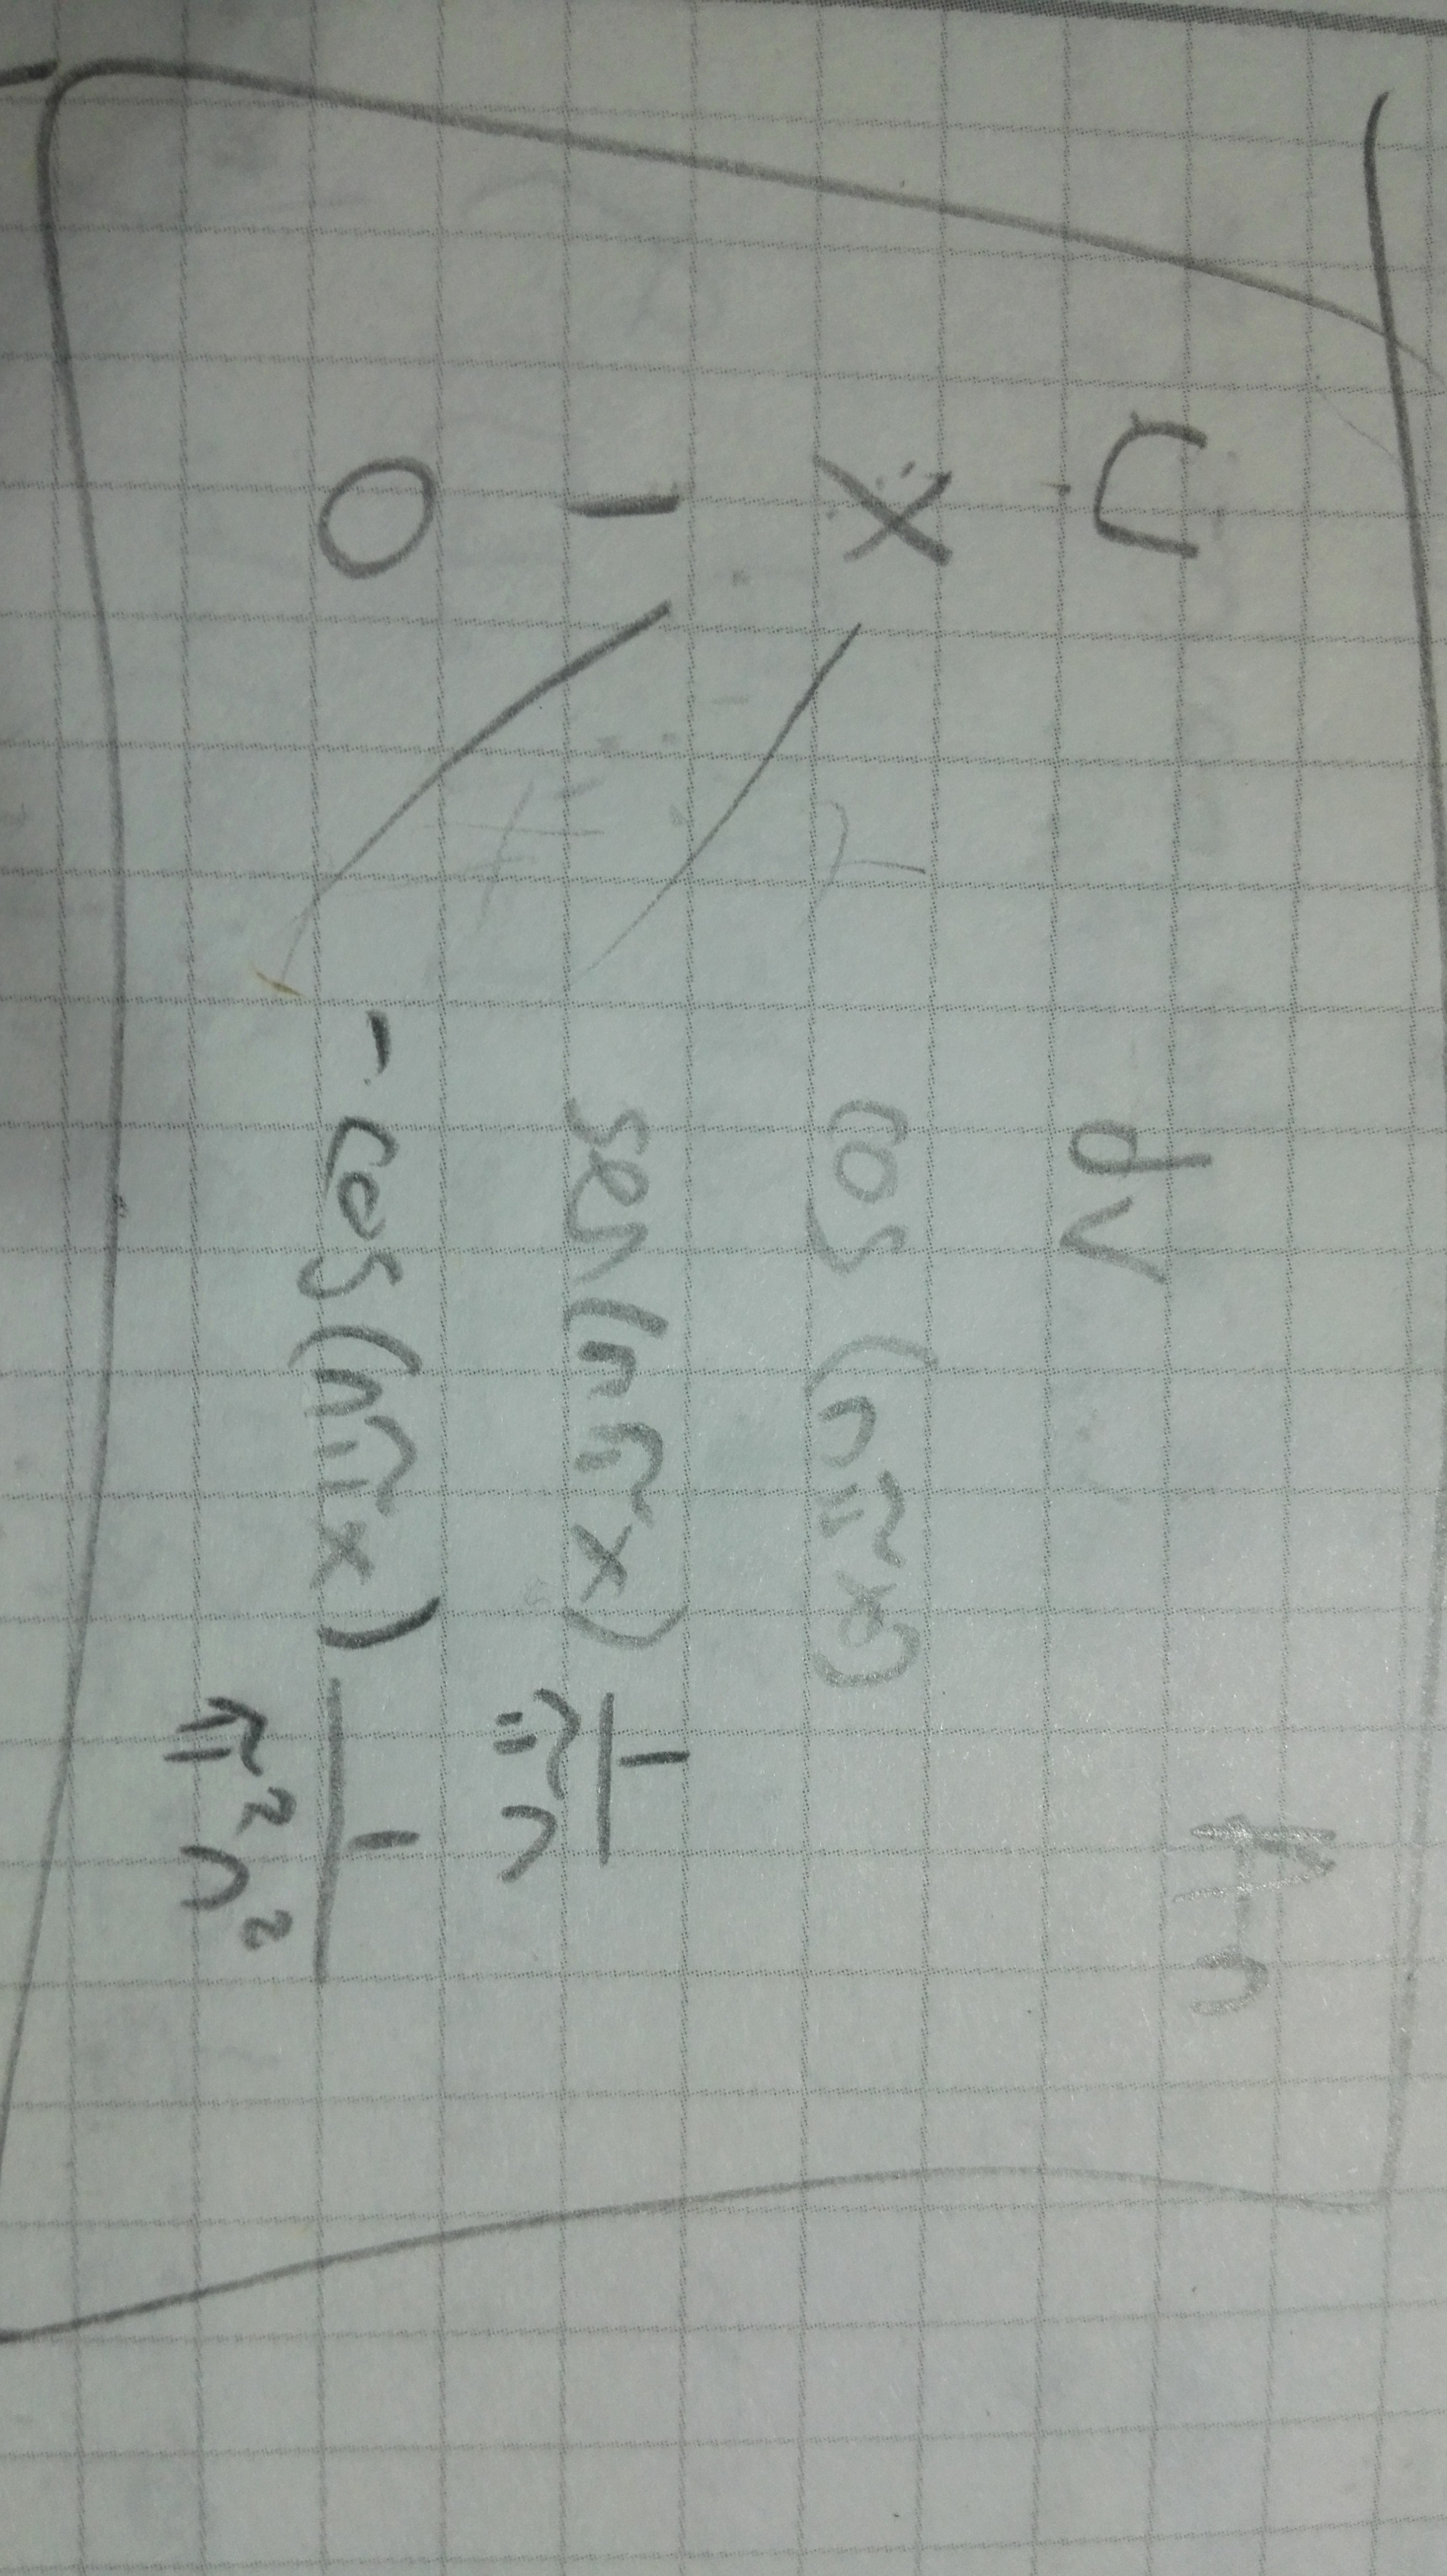 U dv
x cos(nπx)
1 sen(nπx) 1/πn
0 -cos(nπx) 1/π²n²